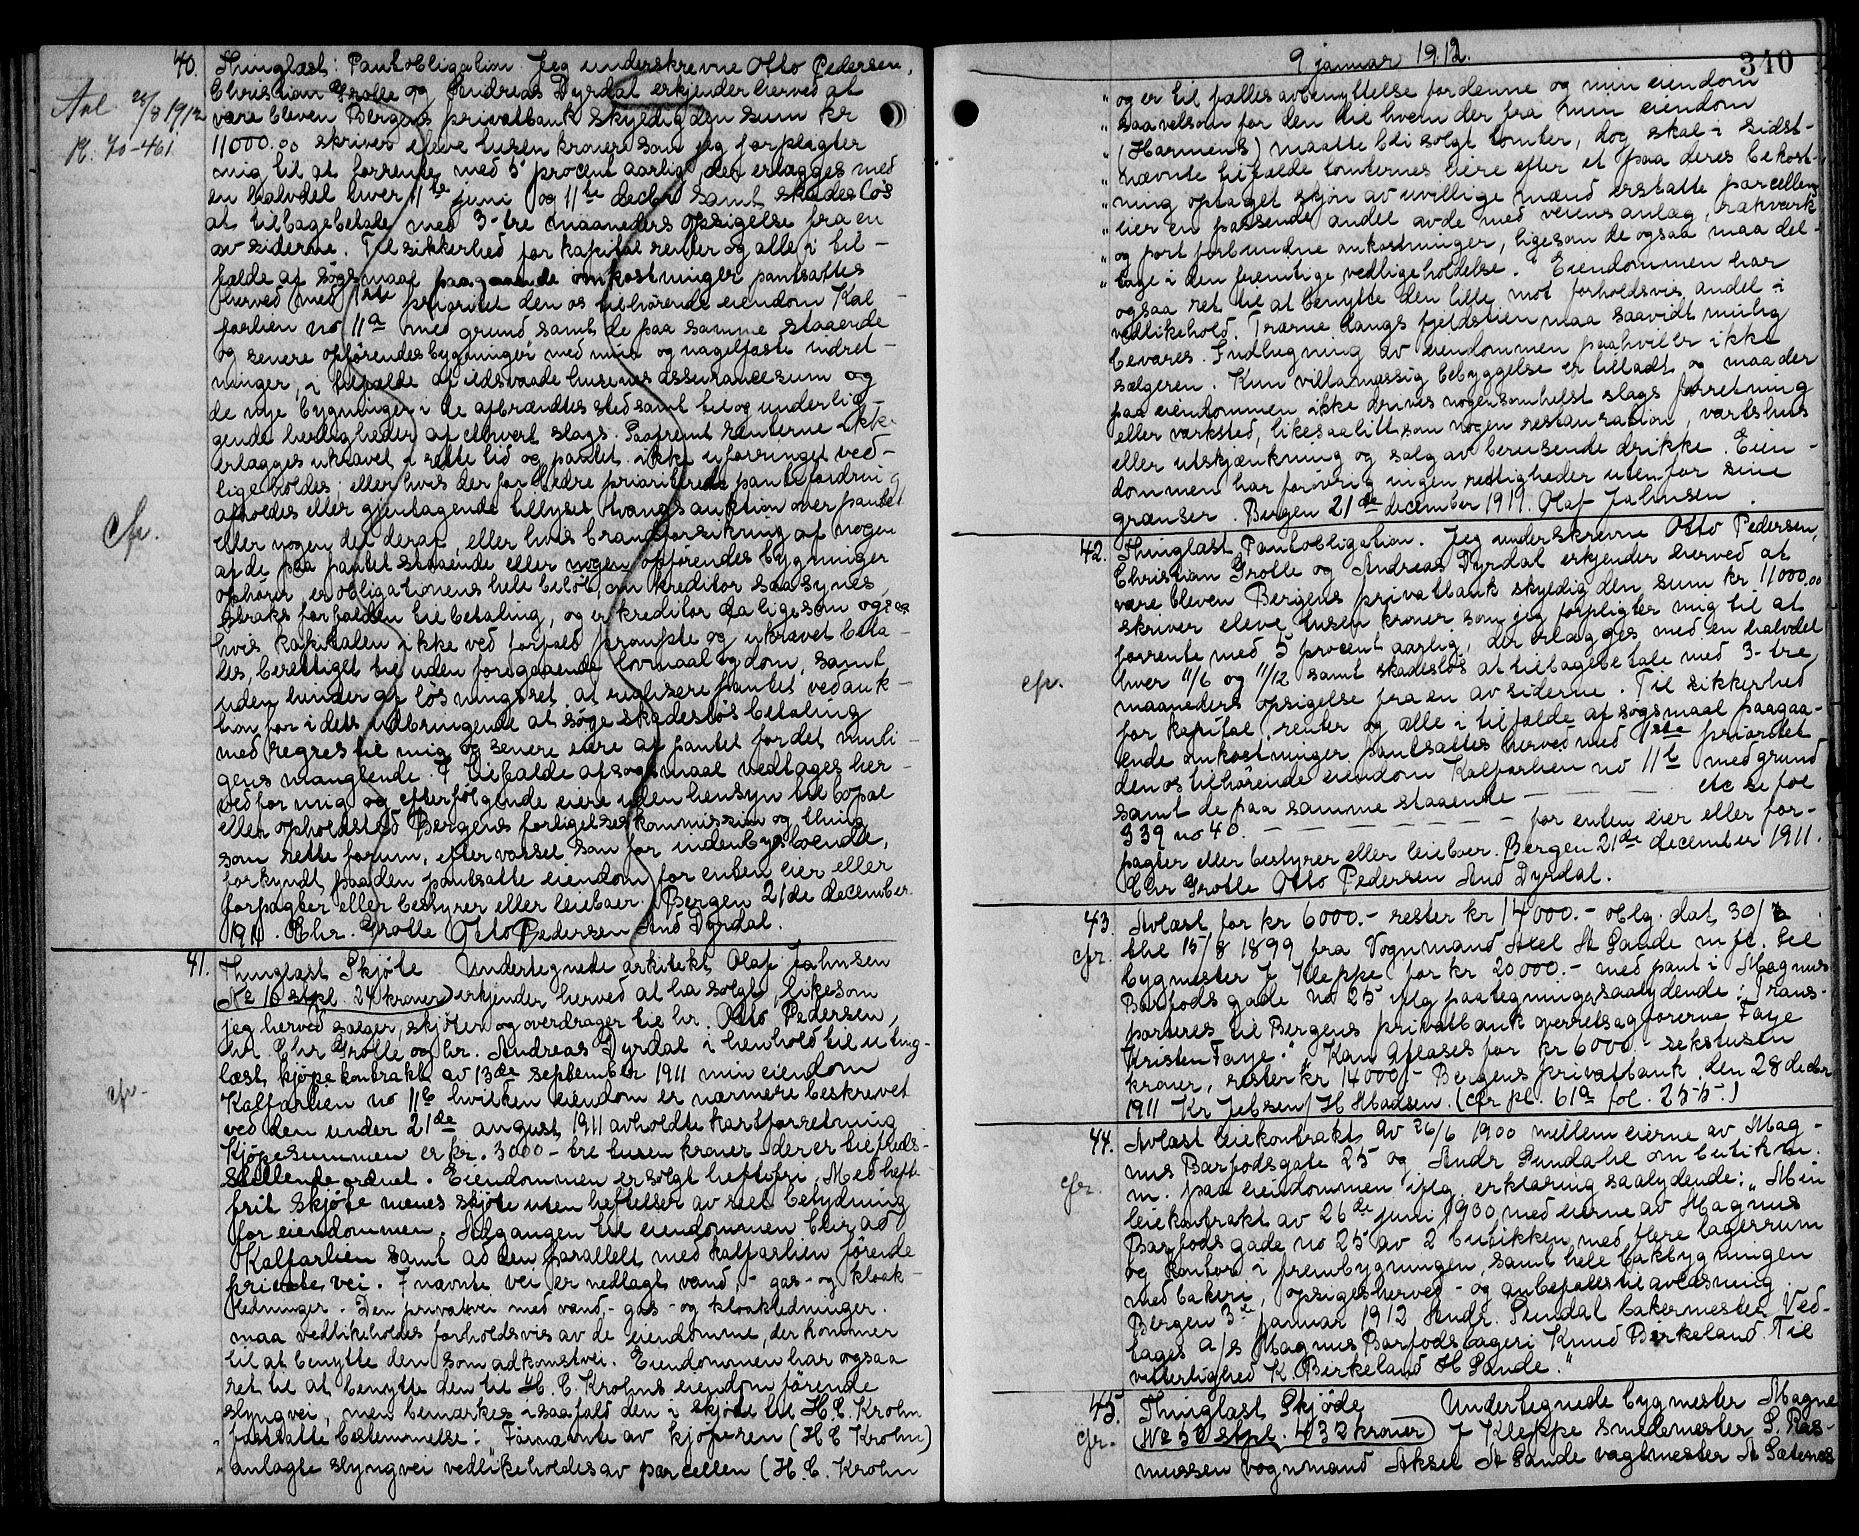 40. Thinglæst: Pantobligation. Jeg underskrevne Otto Pedersen,
Christian Grolle og Andreas Dyrdal erkjender herved at
Avl 28/8 1912 være bleven Bergens privatbank skyldig den sum kr
Pl. 70-461 11000.00 skriver eleve tusen kroner som jeg forpligter
mig til at forrente med 5 procent aarlig, der erlægges med
en halvdel hver 11te juni og 11te decbr samt skadeslös
at tilbagebetale med 3-tre maaneders opsigelse fra en
av siderne. Til sikkerhed for kapital renter og alle i til-
fælde af sögsmaal paagaaende omkostninger pantsattes
herved med 1ste prioritet den os tilhörende eiendom Kal-
farlien no 11a med grund samt de paa samme staaende
og senere opförendes bygninger med mur og nagelfaste indret-
ninger, i tilfælde af ildsvaade husenes assurancesum og
de nye bygninger i de afbrændtes sted samt til og underlig-
gende herligheder af ethvert slags. Saafremt renterne ikke
erlægges ukrævet i rette tid og pantet ikke uforringet ved-
ligeholdes; eller hvis der for bedre prioriterede pantefordring
afholdes eller gjentagende tillyses tvangsauktion over pantet
cfr. eller nogen del deraf, eller hvis brandforsikring af nogen
af de paa pantet staaende eller nogen opförendes bygninger
ophörer, er obligationens hele belöb, om kreditor saa synes,
straks forfalden til betaling, og er kreditor da ligesom ogsaa
hvis kapitalen ikke ved forfald prompte og ukrævet beta-
les, berettiget til uden foregaaende lovmaal og dom, samt
uden hinder af lösningsret at realisere pantet ved auk-
tion for i dets udbringende at söge skadeslös betaling
med regres til mig og senere eiere af pantet for det muli-
gens manglende. I tilfælde af sögsmaal vedtages her-
ved for mig og efterfölgende eiere uden hensyn til bopæl
eller opholdsted Bergens forligelseskommission og thing
som rette forum, efter varsel som for indenbysboende,
forkyndt paa den pantsatte eiendom for enten eier eller
forpagter eller bestyrer eller leieboer. Bergen 21de december
1911. Chr. Grolle Otto Pedersen And Dyrdal.
41. Thinglæst Skjöte Undertegnede arkitekt Olaf Jahnsen
(No 16 stpl. 24 kroner) erkjender herved at ha solgt, likesom
jeg herved sælger, skjöter og overdrager til hr. Otto Pedersen,
hr. Chr Grolle og hr. Andreas Dyrdal i henhold til uting-
læst kjöpekontrakt av 13de september 1911 min eiendom
cfr. Kalfarlien no 11b hvilken eiendom er nærmere beskrevet
ved den under 21de august 1911 avholdte kartforretning
Kjöpesummen er kr. 3000- tre tusen kroner der er tilfreds-
stillende ordnet. Eiendommen er solgt heftefri. Med hefte-
frit skjöte menes skjöte uten heftelser av stel betydning
for eiendommen. Adgangen til eiendommen blir ad
Kalfarlien samt ad den parallelt med kalfarlien förende
private vei. I nævnte vei er nedlagt vand,- gas- og kloak-
ledninger. Den privatvei med vand,- gas- og kloakledninger.
maa vedlikeholdes forholdsvis av de eiendomme, der kommer
til at benytte den som adkomstvei. Eiendommen har ogsaa
ret til at benytte den til H. C. Krohns eiendom förende
slyngvei, men bemærkes isaafald den i skjöte til H.C. Krohn
fastsatte bestemmelse: "Förnævnte av kjöperen (H C Krohn)
" anlagte slyngvei vedlikeholdes av parcellen (H.C. Krohn
9 januar 1912. 340
" og er til fælles avbenyttelse for denne og min eiendom
" saavelsom for den til hvem der fra min eiendom
" (Harmens) maatte bli solgt tomter, dog skal i sidst-
" nævnte tilfælde tomternes eiere efter et paa deres bekost-
" ning optaget skjön av uvillige mænd erstatte parcellens
" eier en passende andel av de med veiens anlæg, rækværk
" og port forbundne omkostninger, ligesom de ogsaa maa del-
" tage i den fremtige vedligeholdelse. Eiendommen har
ogsaa ret til at benytte den lille mot forholdsvis andel i
vedlikehold. Trærne langs fjeldstien maa saavidt mulig
bevares. Indhegning av eiendommen paahviler ikke
sælgeren. Kun villamæssig bebyggelse er tilladt og maa der
paa eiendommen ikke drives nogensomhelst slags forretning
eller verksted, likesaa litt som nogen restauration, værtshus
eller utskjænkning og salg av berusende drikke. Eien-
dommen har forövrig ingen rettigheder utenfor sine
grænser. Bergen 21de december 1911. Olaf Jahnsen.
42. Thinglæst Pantobligation. Jeg underskrevne Otto Pedersen,
Christian Grolle og Andreas Dyrdal erkjender herved at
være bleven Bergens privatbank skyldig den sum kr 11000.00
skriver eleve tusen kroner som jeg forpligter mig til at
forrente med 5 procent aarlig, der erlægges med en halvdel
cfr. hver 11/6 og 11/12 samt skadeslös at tilbagebetale med 3-tre
maaneders opsigelse fra en av siderne. Til sikkerhed
for kapital, renter og alle i tilfælde af sögsmaal paagaa-
ende omkostninger pantsattes herved med 1ste prioritet
den os tilhörende eiendom Kalfarlien no 11b med grund
samt de paa samme staaende — — — — etc se fol
339 no 40. — — — — — — for enten eier eller for-
pagter eller bestyrer eller leieboer. Bergen 21de december 1911.
Chr Grolle Otto Pedersen And Dyrdal.
43. Avlæst for kr 6000.- rester kr 14000.- oblg. dat 30/
cfr. thl 15/8 1899 fra Vognmand Axel A Sande m fl. til
bygmester J Kleppe for kr 20000.- med pant i Magnus
Barfods gade no 25 iflg paategning saalydende: Trans-
porteres til Bergens privatbank overretsagförerne Faye
Kristen Faye." "Kan avlæses for kr 6000- sekstusen
kroner, rester kr 14000,- Bergens privatbank den 28 decbr
1911 Kr Jebsen/H Madsen. (cfr pl. 61a fol. 255.)
44. Avlæst leiekontrakt av 26/6 1900 mellem eierne av Mag-
nus Barfodsgate 25 og Andr Sundahl om butikker
cfr. m. paa eiendommen iflg. erklæring saalydende: "Min
leiekontrakt av 26de juni 1900 med eierne av Magnus
Barfods gade no 25 av 2 butikken med flere lagerrum
og kontor i frembygningen samt hele bakbygningen
med bakeri, opsiges herved - og anbefales til avlæsning
Bergen 3de januar 1912 Andr. Sundal bakermester Ved-
tages A/s Magnus Barfods bageri Knud Birkeland. Til
vitterlighed K Birkeland H Sande."
45. Thinglæst Skjöde Undertegnede bygmester Magne
cfr. (No 50 stpl. 432 kroner) J Kleppe smedemester S. Ras-
mussen vognmand Aksel A Sande vagtmester A Sæternes